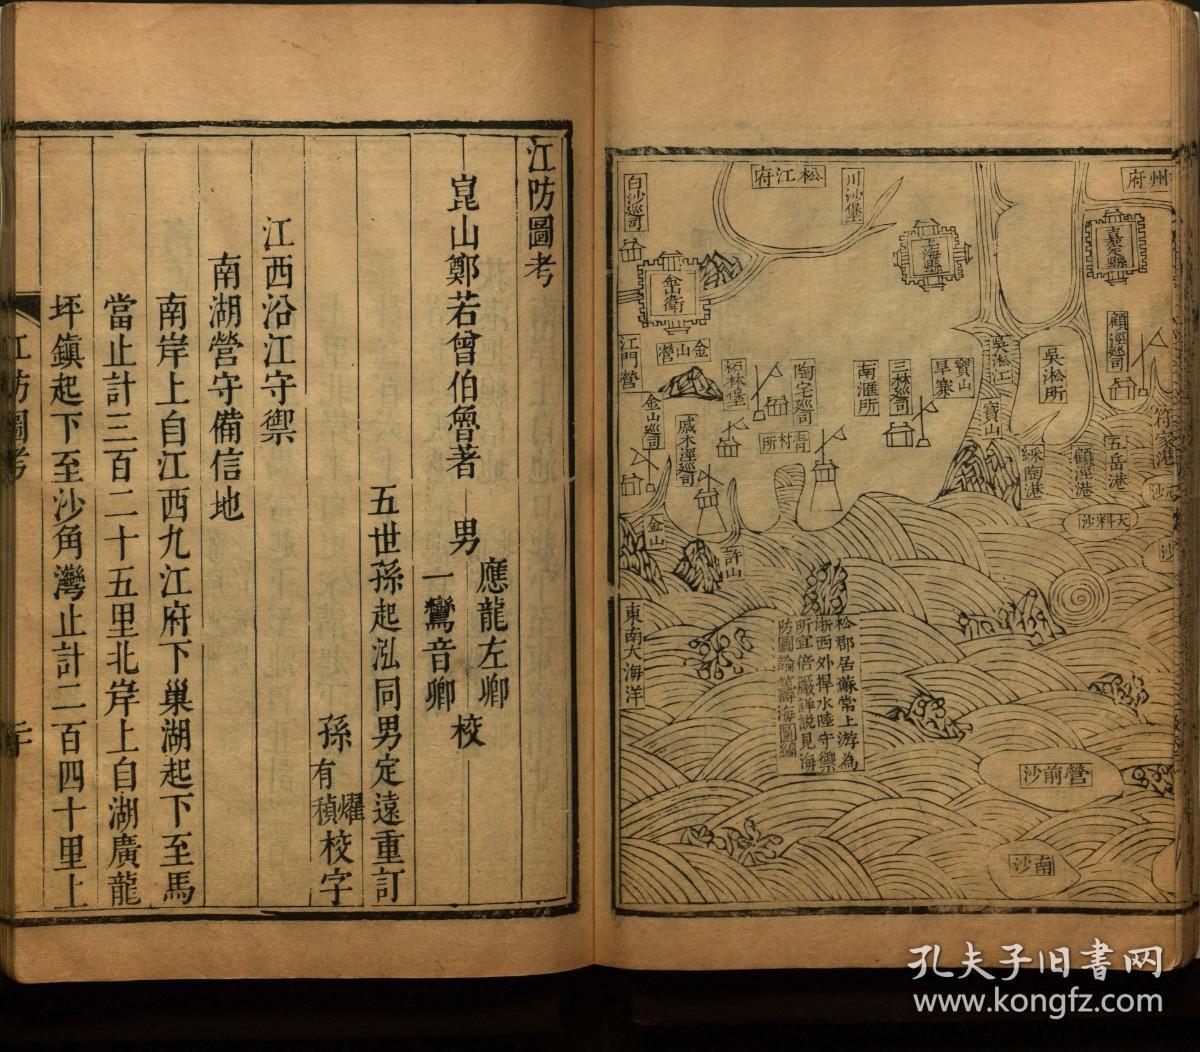 州府
嘉定縣
顧涇巡司
符家港
五岳港
顧涇港
綵淘港
天料沙
沙
吳淞所
吳淞江
寶山
寶山旱寨
上海縣
川沙堡
松江府
三林巡司
南滙所
陶宅巡司
青村所
柘林堡
戚木涇巡司
白沙巡司
金山衛
金山營
江門營
金山巡司
金山
許山
東南大海洋
松郡居蘇常上游為
浙西外捍水陸守禦
所宜倍嚴詳説見海
防圖論籌海圖編
營前沙
南沙
江防圖考
崑山鄭若曾伯魯著 男 應龍左卿 一鸞音卿 校
五世孫起泓同男定遠重訂
孫 有燿 禎 校字
江西沿江守禦
南湖營守備信地
南岸上自江西九江府下巢湖起下至馬
當止計三百二十五里北岸上自湖廣龍
坪鎮起下至沙角灣止計二百四十里上
江防圖考
孔夫子旧書网
www.kongfz.com